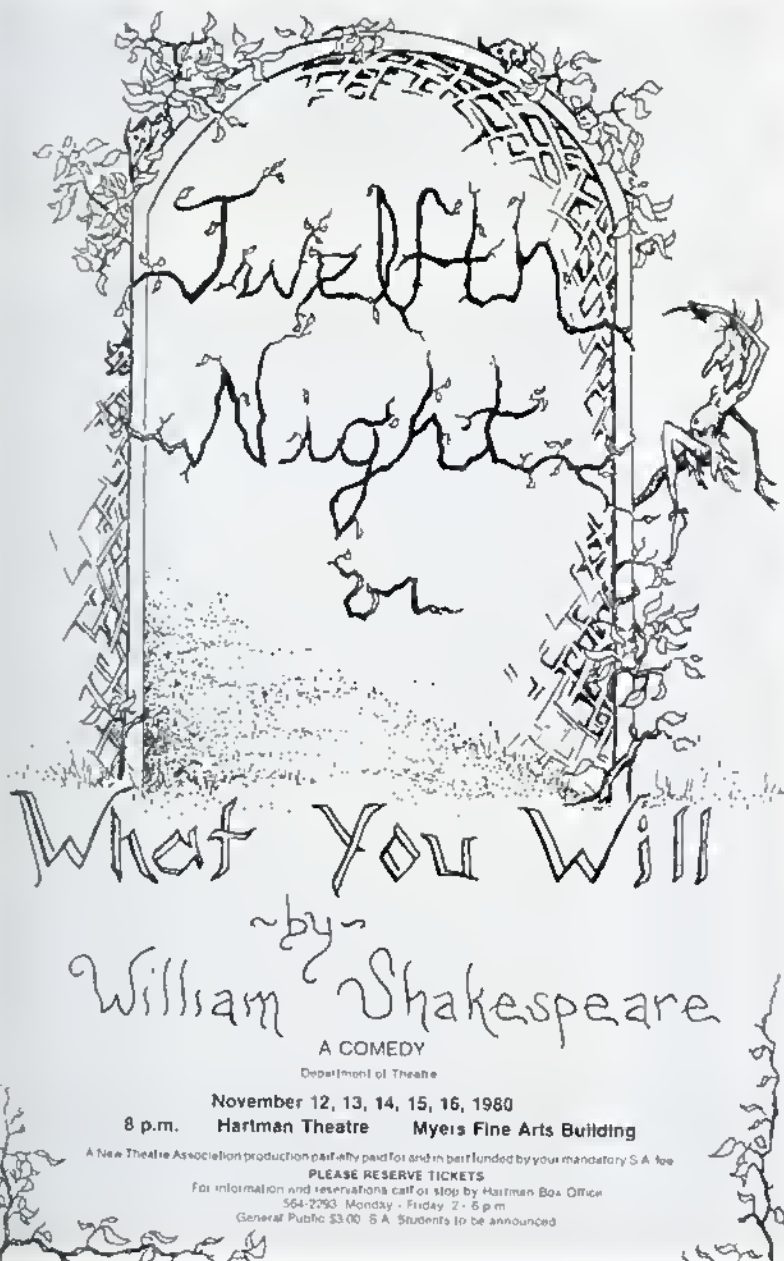 Twelfth
Night
or
What You Will
~by~
William Shakespeare
A COMEDY
Department of Theatre
November 12, 13, 14, 15, 16, 1980
8 p.m. Hartman Theatre Myers Fine Arts Building
A New Theatre Association production partially paid for and in part funded by your mandatory S.A. fee
PLEASE RESERVE TICKETS
For information and reservations call or stop by Hartman Box Office
564-2293 Monday - Friday 2 - 6 p.m.
General Public $3.00 S.A. Students to be announced